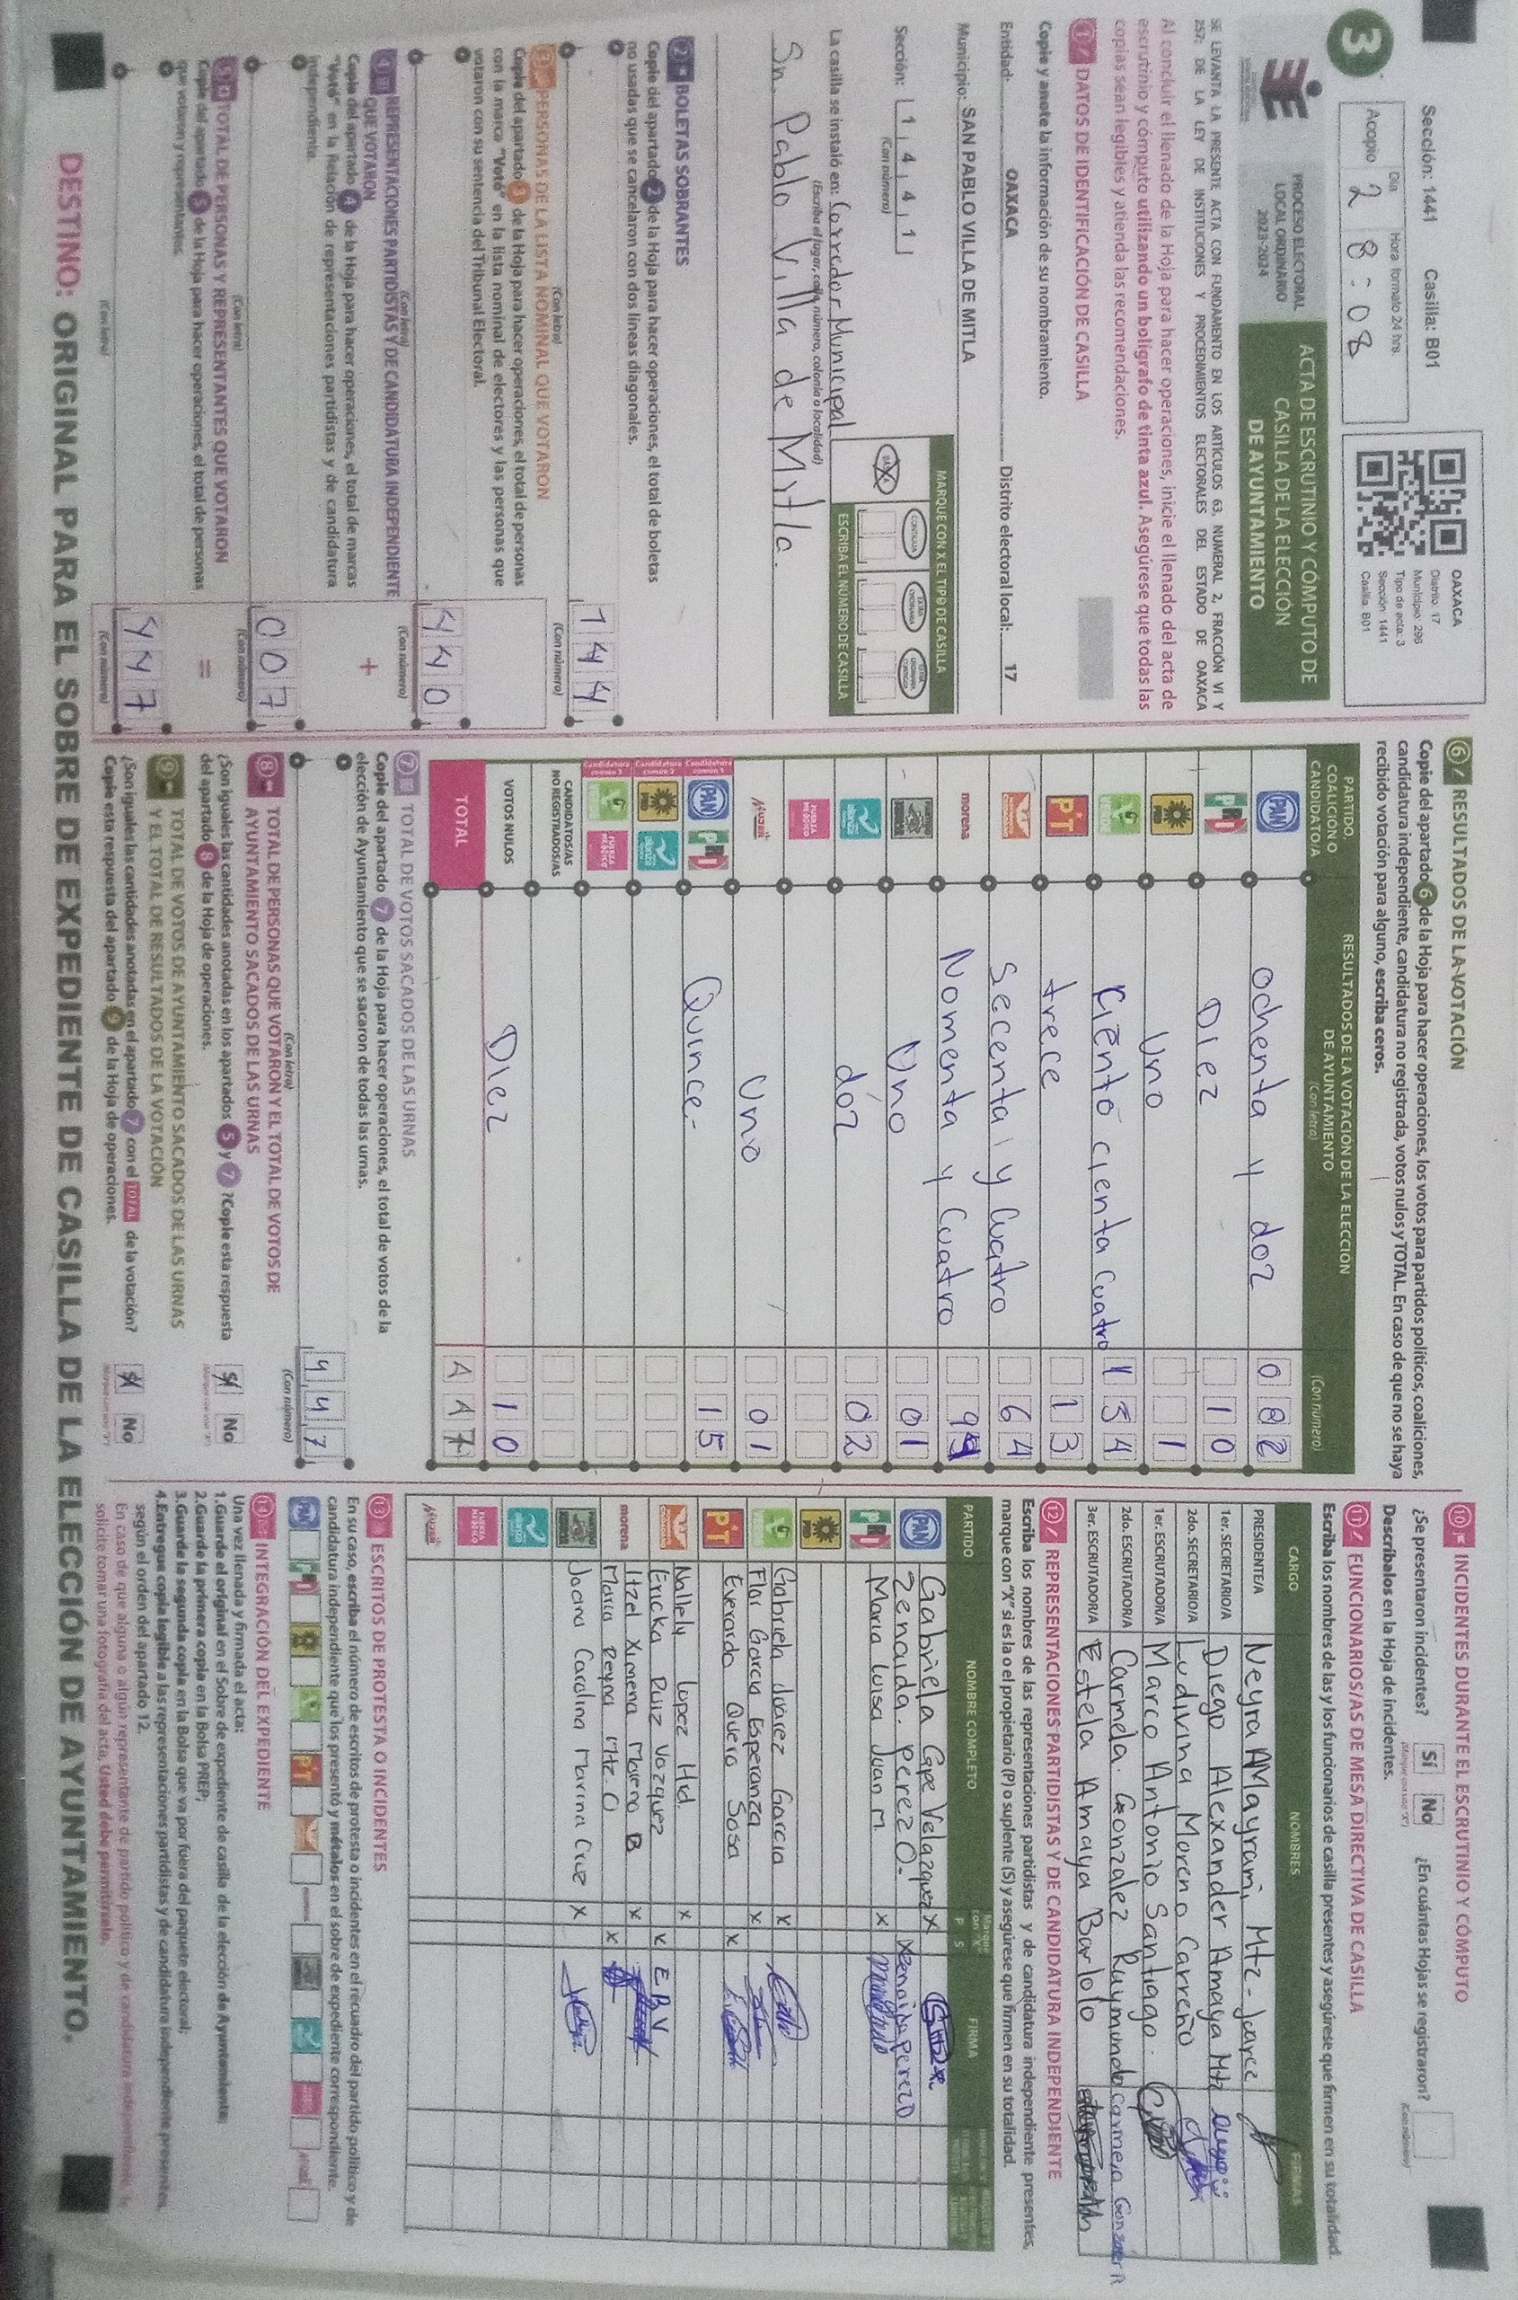 3
Sección: 1441 Casilla: B01
Acopio
Día
Hora formato 24 hrs.
2 8:08
OAXACA
Distrito 17
Municipio: 296
Tipo de acta: 3
Sección 1441
Casilla B01
PROCESO ELECTORAL
LOCAL ORDINARIO
2023-2024
ACTA DE ESCRUTINIO Y CÓMPUTO DE
CASILLA DE LA ELECCIÓN
DE AYUNTAMIENTO
SE LEVANTA LA PRESENTE ACTA CON FUNDAMENTO EN LOS ARTÍCULOS 63, NUMERAL 2, FRACCIÓN VI Y
257; DE LA LEY DE INSTITUCIONES Y PROCEDIMIENTOS ELECTORALES DEL ESTADO DE OAXACA
Al concluir el llenado de la Hoja para hacer operaciones, inicie el llenado del acta de
escrutinio y cómputo utilizando un bolígrafo de tinta azul. Asegúrese que todas las
copias sean legibles y atienda las recomendaciones.
1 DATOS DE IDENTIFICACIÓN DE CASILLA
Copie y anote la información de su nombramiento.
Entidad: OAXACA Distrito electoral local: 17
Municipio: SAN PABLO VILLA DE MITLA
Sección: 1 4 4 1
(Con número)
MARQUE CON X EL TIPO DE CASILLA
ESCRIBA EL NÚMERO DE CASILLA
La casilla se instaló en: Corredor Municipal
(Escriba el lugar, calle, número, colonia o localidad)
Sn. Pablo Villa de Mitla.
2 BOLETAS SOBRANTES
Copie del apartado 2 de la Hoja para hacer operaciones, el total de boletas
no usadas que se cancelaron con dos líneas diagonales.
(Con letra) (Con número)
144
3 PERSONAS DE LA LISTA NOMINAL QUE VOTARON
Copie del apartado 3 de la Hoja para hacer operaciones, el total de personas
con la marca "Votó" en la lista nominal de electores y las personas que
votaron con su sentencia del Tribunal Electoral.
(Con letra) (Con número)
440
4 REPRESENTACIONES PARTIDISTAS Y DE CANDIDATURA INDEPENDIENTE
QUE VOTARON
Copie del apartado 4 de la Hoja para hacer operaciones, el total de marcas
"Votó" en la Relación de representaciones partidistas y de candidatura
independiente.
+
(Con letra) (Con número)
007
5 TOTAL DE PERSONAS Y REPRESENTANTES QUE VOTARON
Copie del apartado 5 de la Hoja para hacer operaciones, el total de personas
que votaron y representantes.
=
(Con letra) (Con número)
447
6 RESULTADOS DE LA VOTACIÓN
Copie del apartado 6 de la Hoja para hacer operaciones, los votos para partidos políticos, coaliciones,
candidatura independiente, candidatura no registrada, votos nulos y TOTAL. En caso de que no se haya
recibido votación para alguno, escriba ceros.
PARTIDO,
COALICIÓN O
CANDIDATO/A
RESULTADOS DE LA VOTACIÓN DE LA ELECCIÓN
DE AYUNTAMIENTO
(Con letra) (Con número)
PAN ochenta y doz 082
PRI Diez 10
PRD Uno 1
ciento cienta cuatro 154
PT trece 13
secenta y cuatro 64
morena Nomenta y cuatro 94
Uno 01
doz 02
FUERZA MÉXICO
Uno 01
Candidatura común 1 PAN PRI Quince 15
Candidatura común 2
Candidatura común 3
CANDIDATOS/AS
NO REGISTRADOS/AS
VOTOS NULOS Diez 10
TOTAL 447
7 TOTAL DE VOTOS SACADOS DE LAS URNAS
Copie del apartado 7 de la Hoja para hacer operaciones, el total de votos de la
elección de Ayuntamiento que se sacaron de todas las urnas.
(Con letra) (Con número)
447
8 TOTAL DE PERSONAS QUE VOTARON Y EL TOTAL DE VOTOS DE
AYUNTAMIENTO SACADOS DE LAS URNAS
¿Son iguales las cantidades anotadas en los apartados 5 y 7? Copie esta respuesta
del apartado 8 de la Hoja de operaciones.
Sí No
9 TOTAL DE VOTOS DE AYUNTAMIENTO SACADOS DE LAS URNAS
Y EL TOTAL DE RESULTADOS DE LA VOTACIÓN
¿Son iguales las cantidades anotadas en el apartado 7 con el TOTAL de la votación?
Copie esta respuesta del apartado 9 de la Hoja de operaciones.
Sí No
10 INCIDENTES DURANTE EL ESCRUTINIO Y CÓMPUTO
¿Se presentaron incidentes? Sí No ¿En cuántas Hojas se registraron?
Descríbalos en la Hoja de incidentes.
11 FUNCIONARIOS/AS DE MESA DIRECTIVA DE CASILLA
Escriba los nombres de las y los funcionarios de casilla presentes y asegúrese que firmen en su totalidad.
CARGO NOMBRES FIRMAS
PRESIDENTE/A Neyra Mayrami Mtz- Juarez
1er. SECRETARIO/A Diego Alexander Amaya Mtz
2do. SECRETARIO/A Ludivina Moreno Carreño
1er. ESCRUTADOR/A Marco Antonio Santiago.
2do. ESCRUTADOR/A Carmela. Gonzalez Raymundo
3er. ESCRUTADOR/A Estela Amaya Barlolo
12 REPRESENTACIONES PARTIDISTAS Y DE CANDIDATURA INDEPENDIENTE
Escriba los nombres de las representaciones partidistas y de candidatura independiente presentes,
marque con "X" si es la o el propietario (P) o suplente (S) y asegúrese que firmen en su totalidad.
PARTIDO NOMBRE COMPLETO P S FIRMA
PAN Gabriela Cope Velazquez X
Zenaida. perez O. X Zenaida perez O
PRI Maria luisa Juan M X
Gabriela Juárez Garcia X
Flor Garcia Esperanza X
PT Everardo Quero Sosa X
Nallely lopez Hd. X
Ericka Ruiz Vazquez X E.B.V
morena Itzel Ximena Moreno B X
Maria Reyna Mtz. O X
Joana Carolina Marina Cruz X
13 ESCRITOS DE PROTESTA O INCIDENTES
En su caso, escriba el número de escritos de protesta o incidentes en el recuadro del partido político y de
candidatura independiente que los presentó y métalos en el sobre de expediente correspondiente.
14 INTEGRACIÓN DEL EXPEDIENTE
Una vez llenada y firmada el acta:
1.Guarde el original en el Sobre de expediente de casilla de la elección de Ayuntamiento;
2.Guarde la primera copia en la Bolsa PREP;
3.Guarde la segunda copia en la Bolsa que va por fuera del paquete electoral;
4.Entregue copia legible a las representaciones partidistas y de candidatura independiente presentes,
según el orden del apartado 12.
En caso de que alguna o algún representante de partido político y de candidatura independiente, le
solicite tomar una fotografía del acta, Usted debe permitírselo.
DESTINO: ORIGINAL PARA EL SOBRE DE EXPEDIENTE DE CASILLA DE LA ELECCIÓN DE AYUNTAMIENTO.